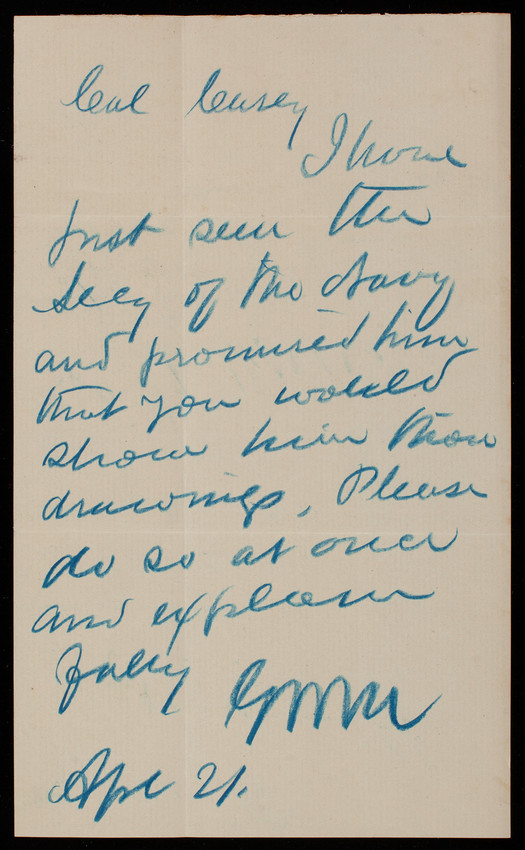 Col Casey
I have
just seen the
Secy of the Navy
and promised him
that you would
show him those
drawings. Please
do so at once
and explain
fully
Apr 21.